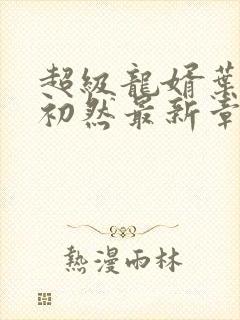 超級龍婿葉
初然最新章
熱漫雨林